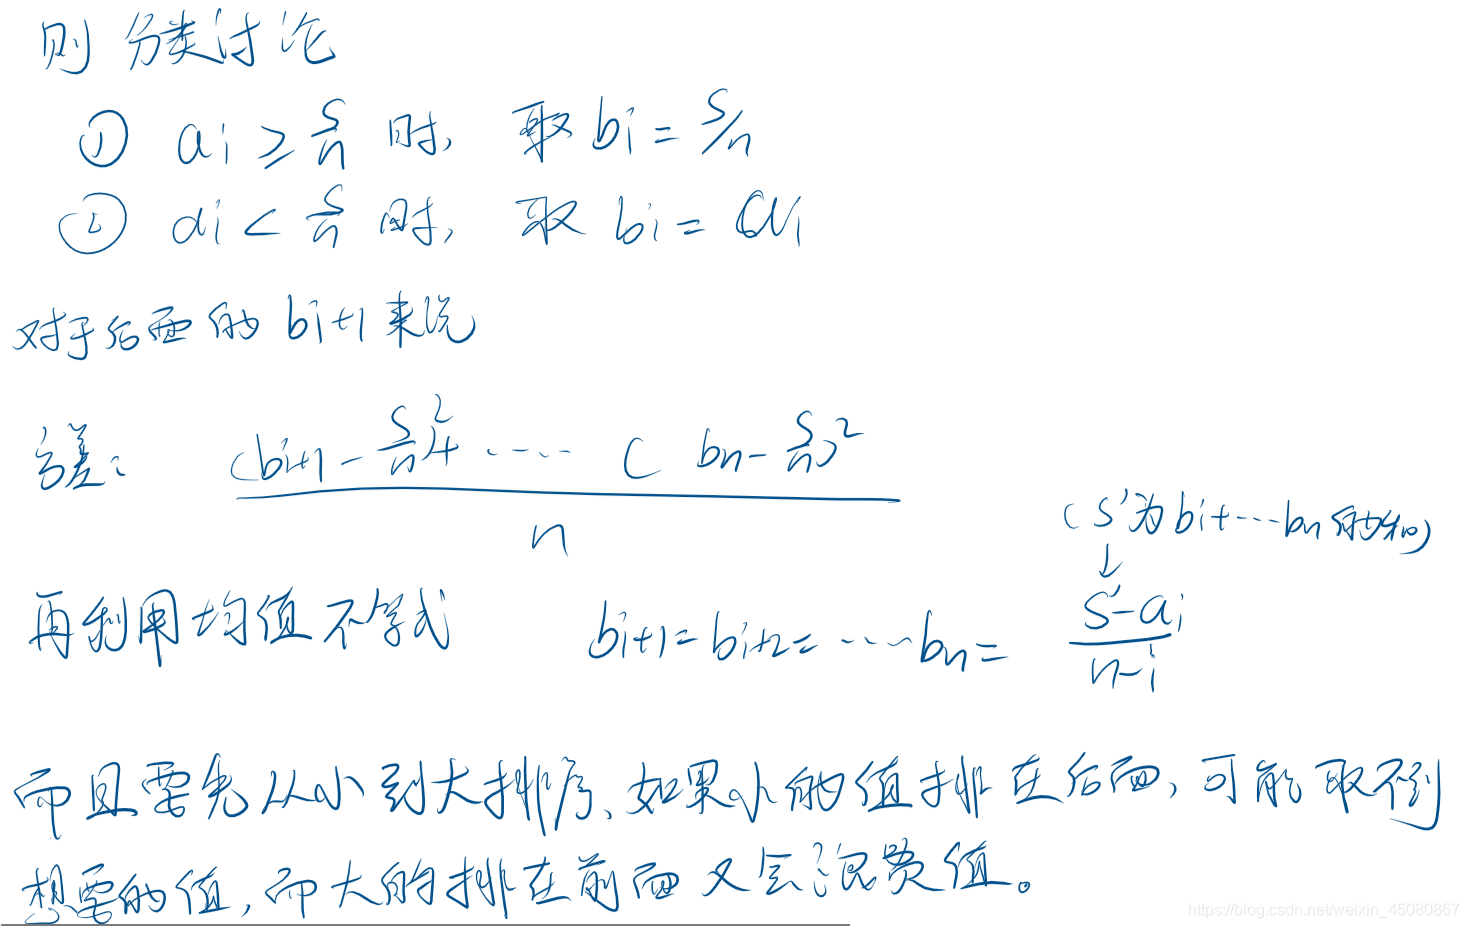 则 分类讨论
① ai ≥ s/n 时, 取 bi = s/n
② ai < s/n 时, 取 bi = ai
对于后面的 bi+1 来说
方差: ((bi+1 - s/n)² + ····· (bn - s/n)²) / n
(s'为bi+···bn的和)
↓
再利用均值不等式 bi+1 = bi+2 = ····bn = (s'-ai)/(n-i)
而且要先从小到大排序、如果小的值排在后面, 可能取不到
想要的值, 而大的排在前面又会浪费值。
https://blog.csdn.net/weixin_45080867